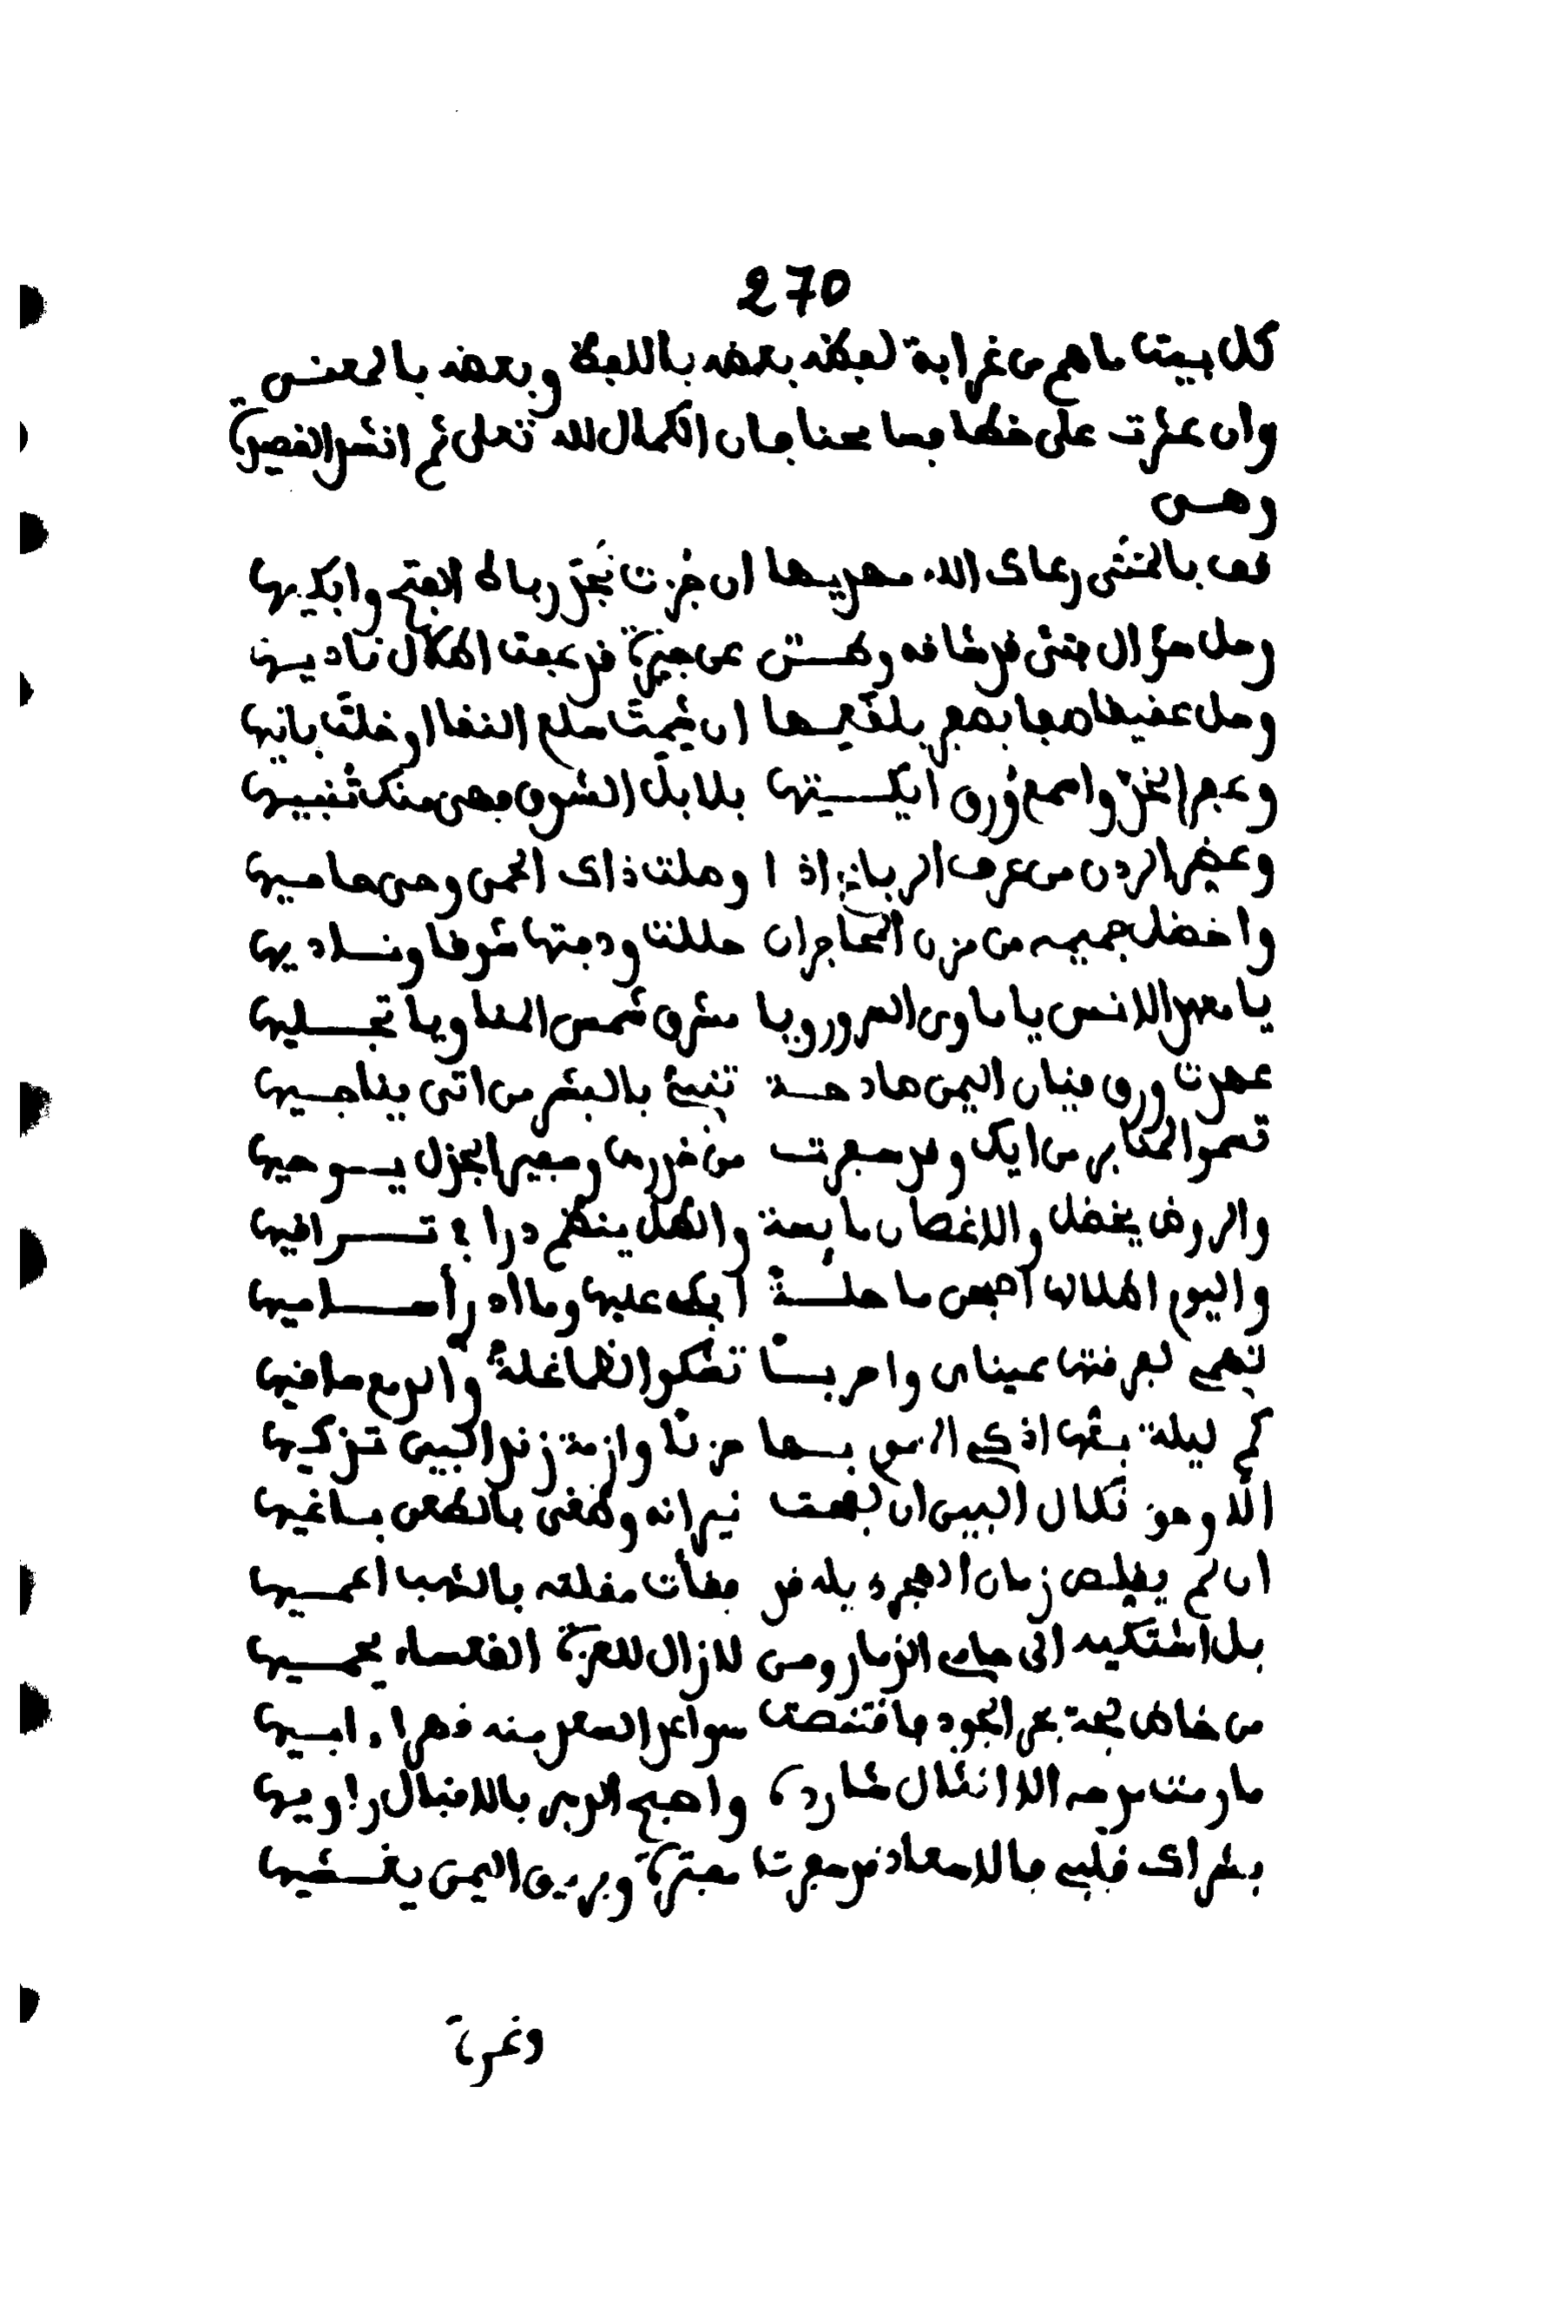 270
كل بيت ما هم من غرابة لفظه بعضه باللفظ وبعضه بالمعنى
وان عثرت على خطا فسامحنا فان الكمال لله تعلى ثم انشد القصيدة
وهى
قف بالمثنى رعاك الله مهديها ان جزت نجد رباك الفتح وابكيها
وسل سؤال فتى قد شافه وطن عن جيرة قد عفت اطلال ناديها
وسل عقيقا صفا بمع بلفعها ان شمت سلع النقا او خلت بانيها
وعج الخد واسمع ورق ايكتها بلابل الشوق فهى منك تنبيها
وعفر الردن من عرف الرياض اذا وصلت ذاك الحمى وحى حاميها
واخضل جميمه من مزن المحاجر ان حللت ودمتها شوقا وناديها
يا معهد الانس يا ماوى السرور ويا مشرق شمس المنا ويا تجليها
عهدت ورق قيان اليمن صادحة تنبئ بالبشر من اتى يناجيها
تسموا المنابر من ايك وقد سجعت من خدرها وسجير الجزل يوحيها
والروض يخضل والاغصان مايسة والطل ينظم درا فى تراقيها
واليوم اطلالها اضحى ماحلة ابك عليها وما اد راساميها
تهمى لعرفتها عيناى واحربا تشكوا الظما غلة والدمع ساقيها
كم ليلة بتها اذكى الاسى بها حزنا وازمة زند البين تذكيها
الا وهو نكال البين ان لفحت نيرانه وطغى بالطعن باغيها
ان لم يقلص زمان الهجر ذيله قد فقأت مقلته بالشهب اعميها
بل اشتكيه الى حامى الذمار ومن لازال للعزة القعساء يحميها
من خاض لجة بحر الجود فاقتنصت سواعد السعد منه قهرا ابيها
ما رمت مدحه الا انثال شاردة واصبح الدهر بالاقبال راويها
بشراك قلبى فالاسعاد قد سجرت مبترة وبريق اليمن يغشيها
وغرة